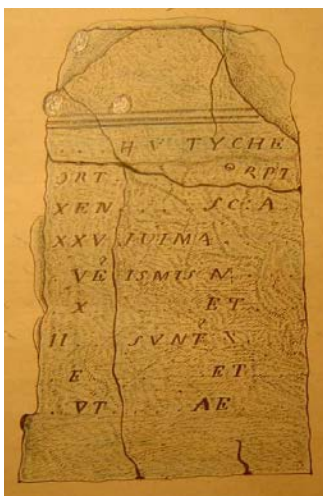 . . . H V TYCHE
ƆRT. . . ORPT
XEN . . . . SC:A
XXV IVIMA .
VE ISMIS N . .
X ET
II . . SVNT X . .
E ET
VT AE